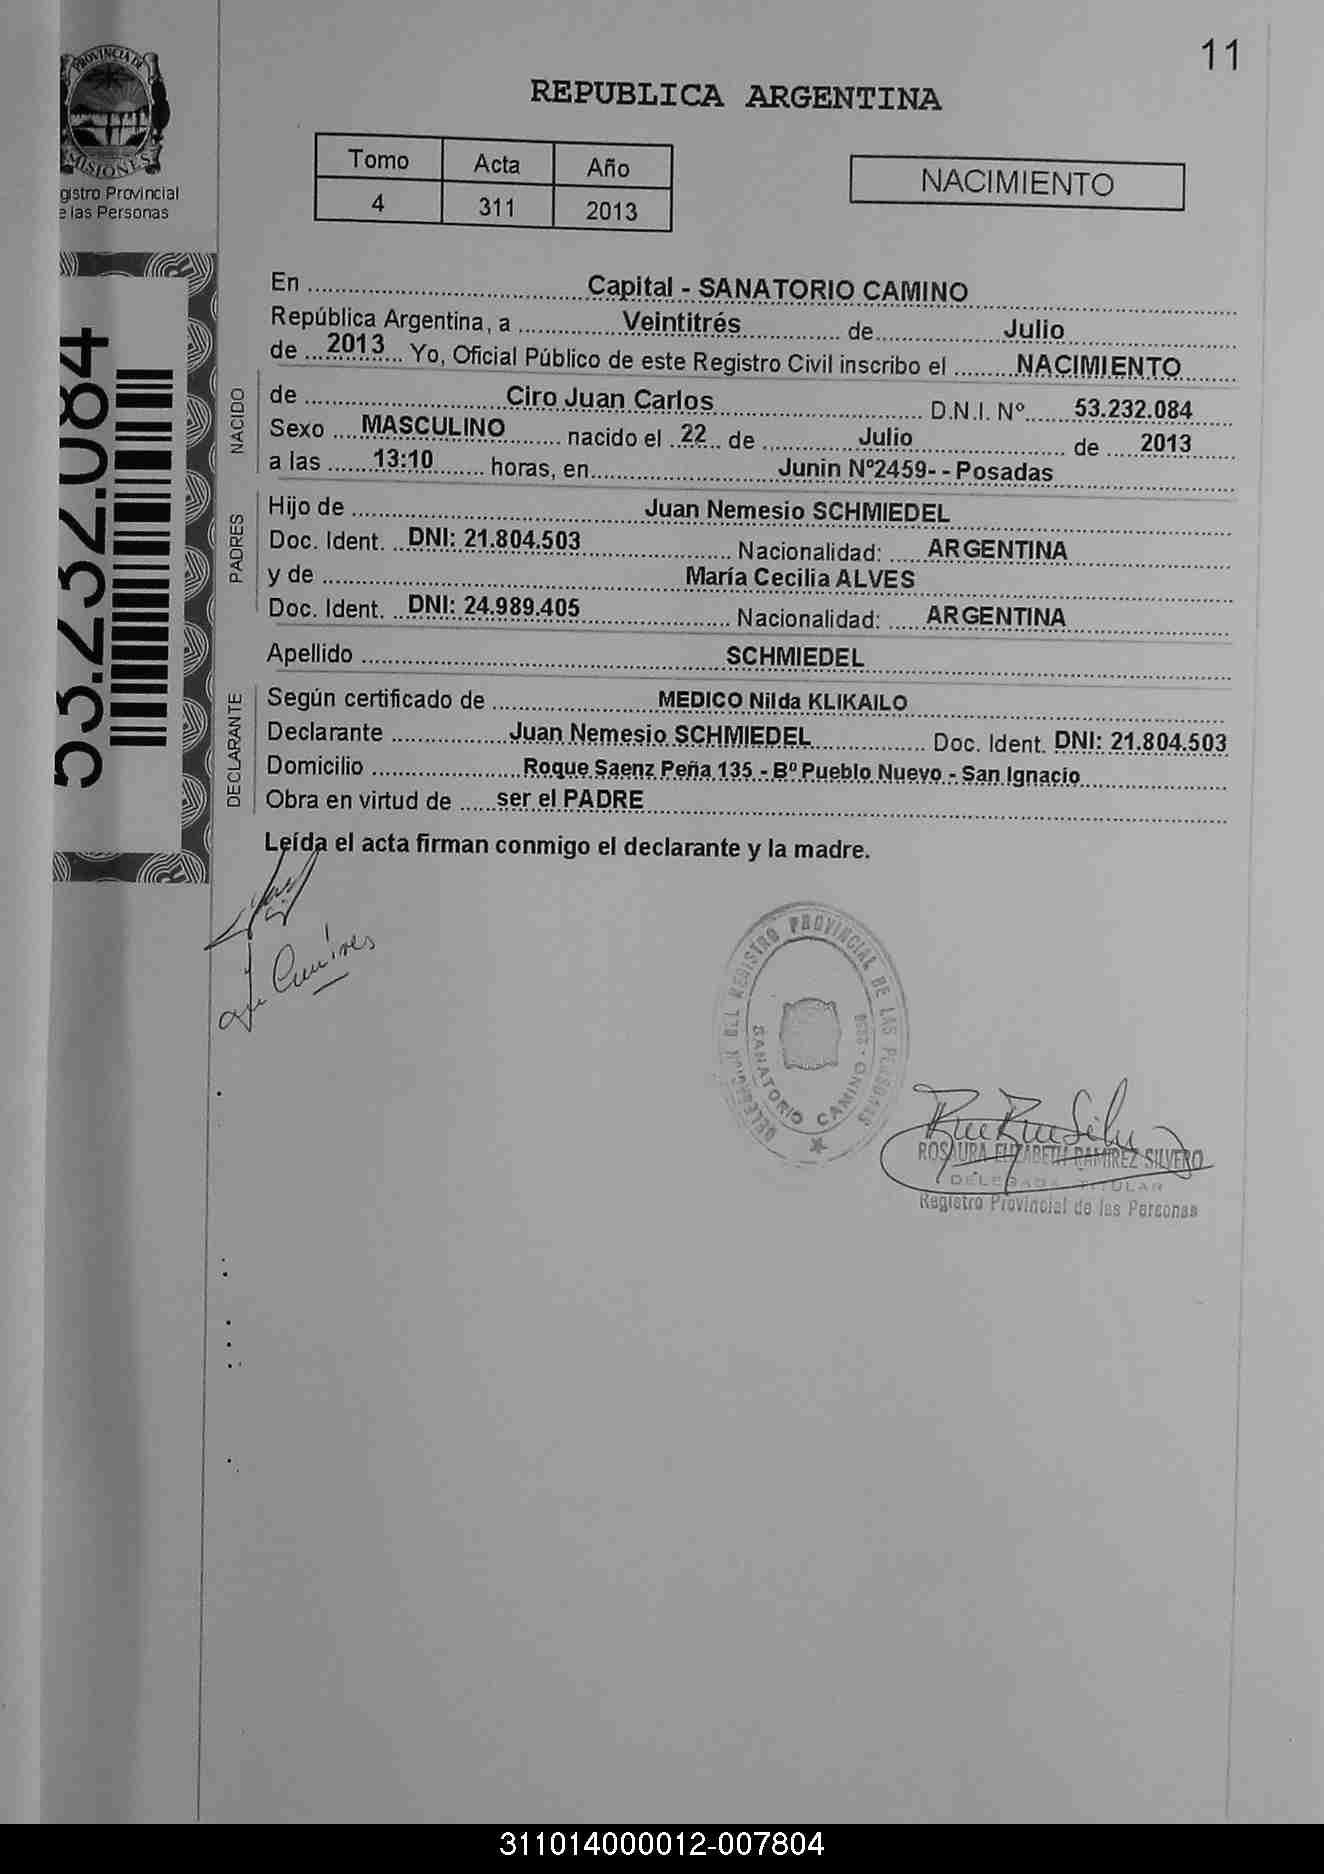 11
REPUBLICA ARGENTINA
PROVINCIA DE
MISIONES
gistro Provincial
e las Personas
Tomo Acta Año
4 311 2013
NACIMIENTO
53.232.084
En Capital - SANATORIO CAMINO
República Argentina, a Veintitrés de Julio
de 2013 Yo, Oficial Público de este Registro Civil inscribo el NACIMIENTO
NACIDO
de Ciro Juan Carlos D.N.I. Nº 53.232.084
Sexo MASCULINO nacido el 22 de Julio de 2013
a las 13:10 horas, en Junin Nº2459- - Posadas
PADRES
Hijo de Juan Nemesio SCHMIEDEL
Doc. Ident. DNI: 21.804.503 Nacionalidad: ARGENTINA
y de María Cecilia ALVES
Doc. Ident. DNI: 24.989.405 Nacionalidad: ARGENTINA
Apellido SCHMIEDEL
DECLARANTE
Según certificado de MEDICO Nilda KLIKAILO
Declarante Juan Nemesio SCHMIEDEL Doc. Ident. DNI: 21.804.503
Domicilio Roque Saenz Peña 135 - Bº Pueblo Nuevo - San Ignacio
Obra en virtud de ser el PADRE
Leída el acta firman conmigo el declarante y la madre.
DELEGACION DEL REGISTRO PROVINCIAL DE LAS PERSONAS
SANATORIO CAMINO
ROSAURA ELIZABETH RAMIREZ SILVERO
DELEGADA TITULAR
Registro Provincial de las Personas
311014000012-007804